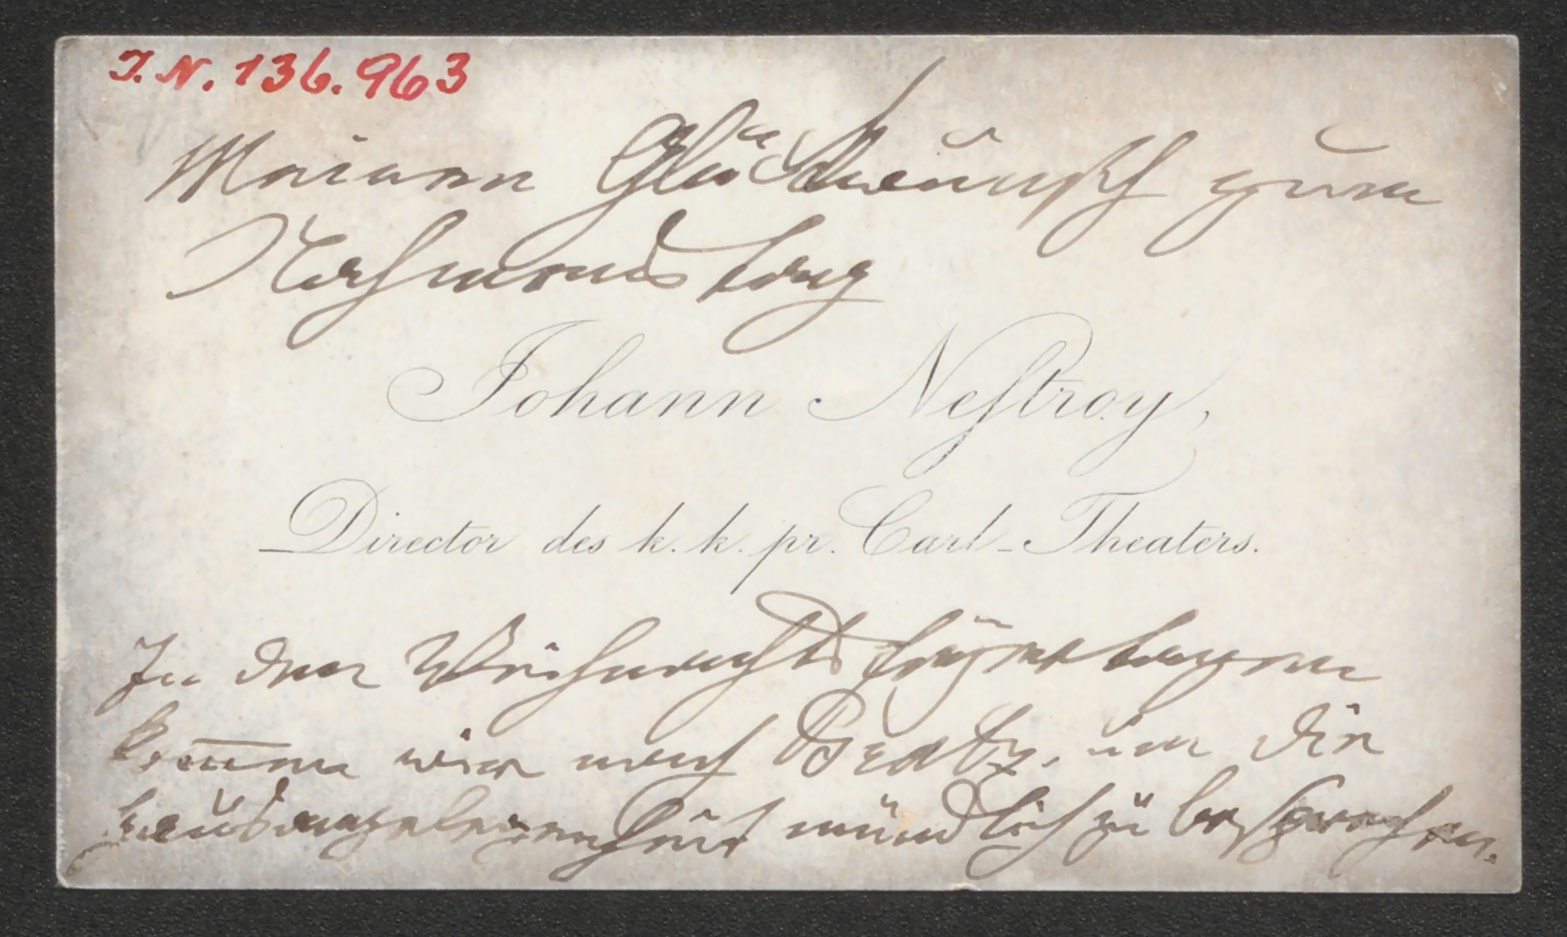 J. N. 136.963
Meinen Glückwunsch zum
Nahmenstag
Johann Nestroy,
Director des k. k. pr. Carl-Theaters.
In den Weihnachtsfeyertagen
kom̅en wir nach Gratz, um die
Hausangelegenheit mündlich zu besprechen.